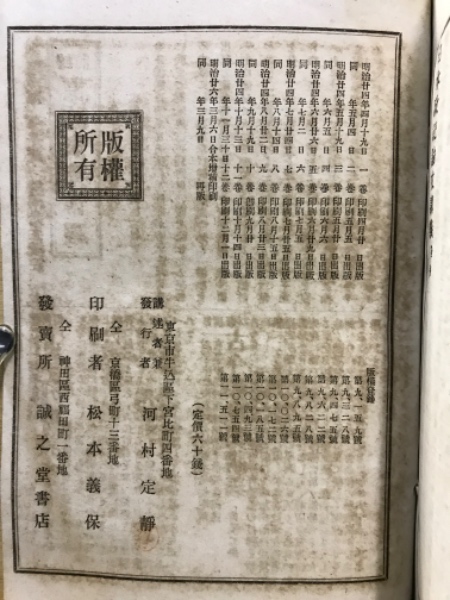 明治廿四年四月十九日一巻印刷四月廿日出版
同年五月四日二巻印刷五月五日出版
明治廿四年五月十九日三巻印刷五月廿日出版
同年六月五日四巻印刷六月六日出版
明治廿四年六月廿六日五巻印刷六月廿日出版
同年七月二日六巻印刷七月五日出版
明治廿四年七月廿四日七巻印刷七月廿五日出版
同年八月十四日八巻印刷八月十五日出版
明治廿四年八月廿二日九巻印刷八月廿三日出版
同年九月十九日十巻印刷九月廿日出版
明治廿四年十月十三日十一巻印刷十月十四日出版
同年十一月三十日十二巻印刷十二月一日出版
明治廿六年三月六日合本増補印刷
同年三月九日再版
版權登錄
第九一五九號
第九三二八號
第九四七五號
第九六二二號
第九八二八號
第九八九五號
第一〇〇二六號
第一〇一七二號
第一〇一八五號
第一〇四九三號
第一〇七五四號
第一一五二一號
(定價六十錢)
版權所有
東京市牛込區下宮比町四番地
講述者兼發行者 河村定靜
仝 京橋區弓町十三番地
印刷者 松本義保
仝 神田區西福田町一番地
發賣所 誠之堂書店